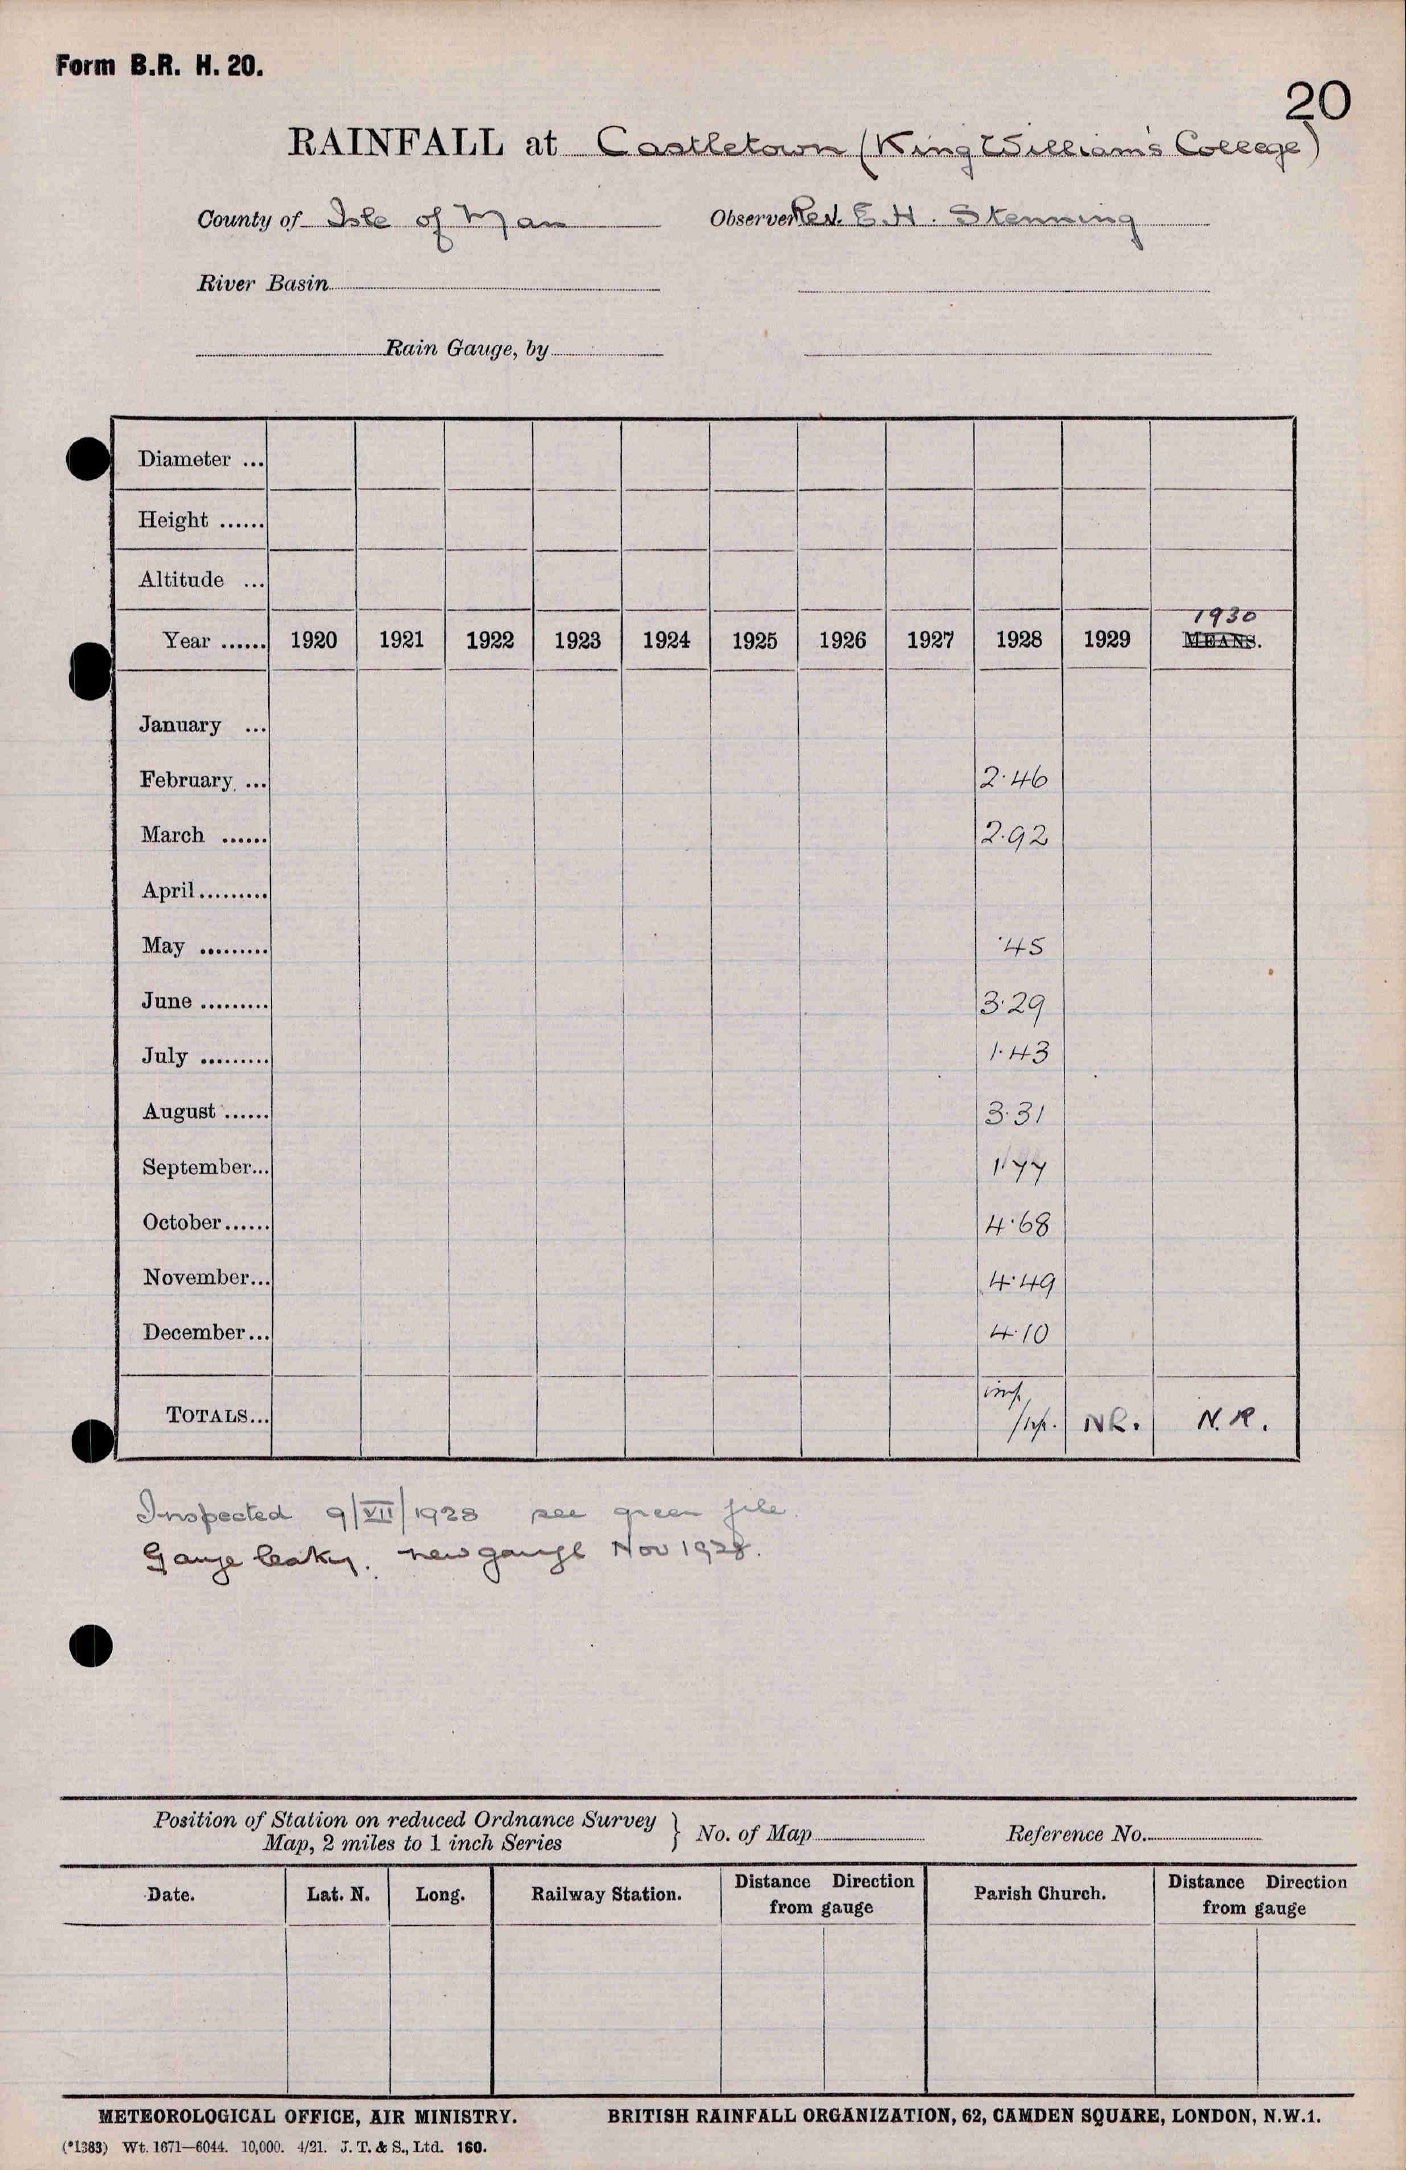 Form B.R. H. 20.
20
RAINFALL at Castletown (King William's College)
County of Isle of Man Observer Rev. E.H. Stenning
River Basin
Rain Gauge, by
Diameter ...
Height ......
Altitude ...
1930
Year ...... 1920 1921 1922 1923 1924 1925 1926 1927 1928 1929 MEANS.
January ...
February ... 2.46
March ...... 2.92
April .........
May ......... .45
June ......... 3.29
July ......... 1.43
August ...... 3.31
September... 1.77
October ...... 4.68
November... 4.49
December... 4.10
TOTALS... imp. NR. N.R.
Inspected 9/VII/1928 see green file.
Gauge leaky. new gauge Nov 1928.
Position of Station on reduced Ordnance Survey
Map, 2 miles to 1 inch Series } No. of Map Reference No.
Date. Lat. N. Long. Railway Station. Distance Direction from gauge Parish Church. Distance Direction from gauge
METEOROLOGICAL OFFICE, AIR MINISTRY. BRITISH RAINFALL ORGANIZATION, 62, CAMDEN SQUARE, LONDON, N.W.1.
(*1383) Wt. 1671—6044. 10,000. 4/21. J. T. & S., Ltd. 160.